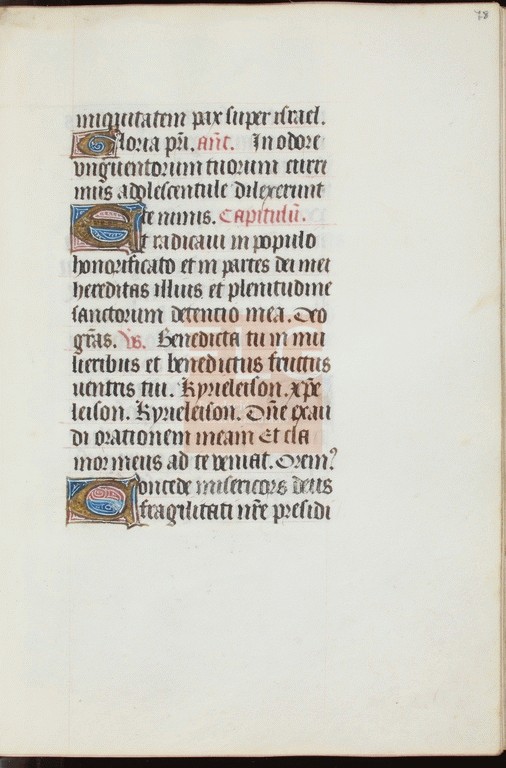 78
iniquitatem pax super israel.
Gloria pri. ant. In odore
vnguentorum tuorum curri
mus adolescentule dilexerunt
te nimis. Capitulu.
Et radicaui in populo
honorificato et in partes dei mei
hereditas illius et plenitudine
sanctorum detentio mea. Deo
gras. Vs. Benedicta tu in mu
lieribus et benedictus fructus
uentris tui. Kyrieleison. xpe
leison. Kyrieleison. Dne exau
di orationem meam Et cla
mor meus ad te veniat. Orem?
Concede misericors deus
fragilitati nre presidi